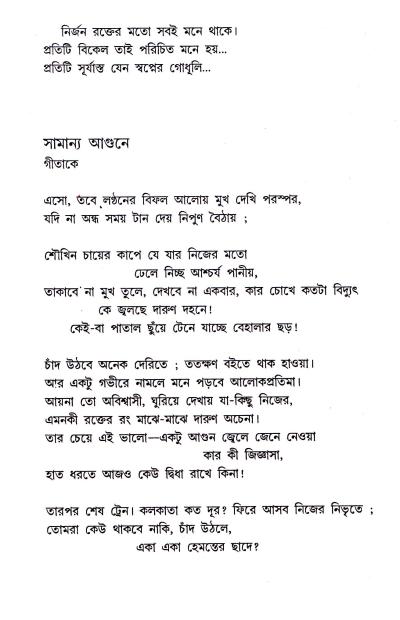 নির্জন রক্তের মতো সবই মনে থাকে।
প্রতিটি বিকেল তাই পরিচিত মনে হয়...
প্রতিটি সূর্যাস্ত যেন স্বপ্নের গোধূলি...
সামান্য আগুনে
গীতাকে
এসো, তবে লণ্ঠনের বিফল আলোয় মুখ দেখি পরস্পর,
যদি না অন্ধ সময় টান দেয় নিপুণ বৈঠায় ;
শৌখিন চায়ের কাপে যে যার নিজের মতো
ঢেলে নিচ্ছ আশ্চর্য পানীয়,
তাকাবে না মুখ তুলে, দেখবে না একবার, কার চোখে কতটা বিদ্যুৎ
কে জ্বলছে দারুণ দহনে!
কেই-বা পাতাল ছুঁয়ে টেনে যাচ্ছে বেহালার ছড়!
চাঁদ উঠবে অনেক দেরিতে ; ততক্ষণ বইতে থাক হাওয়া।
আর একটু গভীরে নামলে মনে পড়বে আলোকপ্রতিমা।
আয়না তো অবিশ্বাসী, ঘুরিয়ে দেখায় যা-কিছু নিজের,
এমনকী রক্তের রং মাঝে-মাঝে দারুণ অচেনা।
তার চেয়ে এই ভালো—একটু আগুন জ্বেলে জেনে নেওয়া
কার কী জিজ্ঞাসা,
হাত ধরতে আজও কেউ দ্বিধা রাখে কিনা!
তারপর শেষ ট্রেন। কলকাতা কত দূর? ফিরে আসব নিজের নিভৃতে ;
তোমরা কেউ থাকবে নাকি, চাঁদ উঠলে,
একা একা হেমন্তের ছাদে?